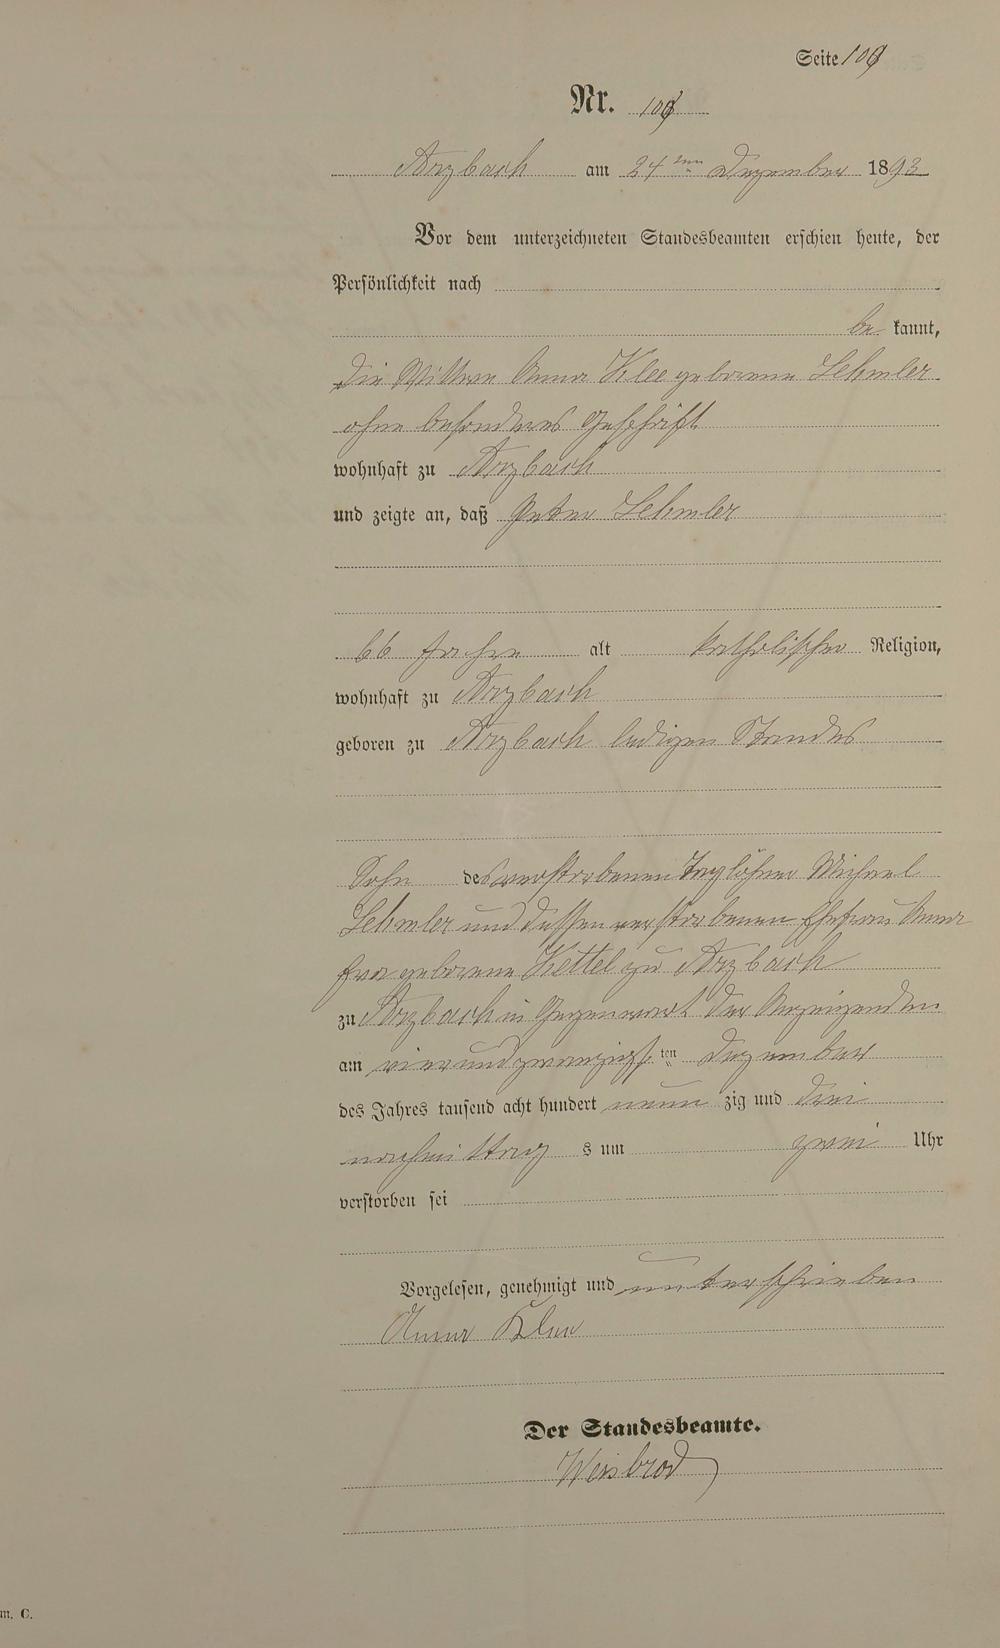 Seite 109
Nr. 109
Arzbach am 24ten Dezember 1893
Vor dem unterzeichneten Standesbeamten erschien heute, der
Persönlichkeit nach
be kannt,
die Wittwe Anna Klee geborene Lehmler
ohne besonderes Geschäft
wohnhaft zu Arzbach
und zeigte an, daß Peter Lehmler
66 Jahre alt katholischer Religion,
wohnhaft zu Arzbach
geboren zu Arzbach ledigen Standes
Sohn des verstorbenen Taglöhner Michael
Lehmler und dessen verstorbenen Ehefrau Anna
Eva geborene Kettel zu Arzbach
zu Arzbach in Gegenwart der Anzeigenden
am vierundzwanzigsten Dezember
des Jahres tausend acht hundert neun zig und drei
nachmittag s um zwei Uhr
verstorben sei
Vorgelesen, genehmigt und unterschrieben
Anna Klee
Der Standesbeamte.
Weisbrod
m. C.